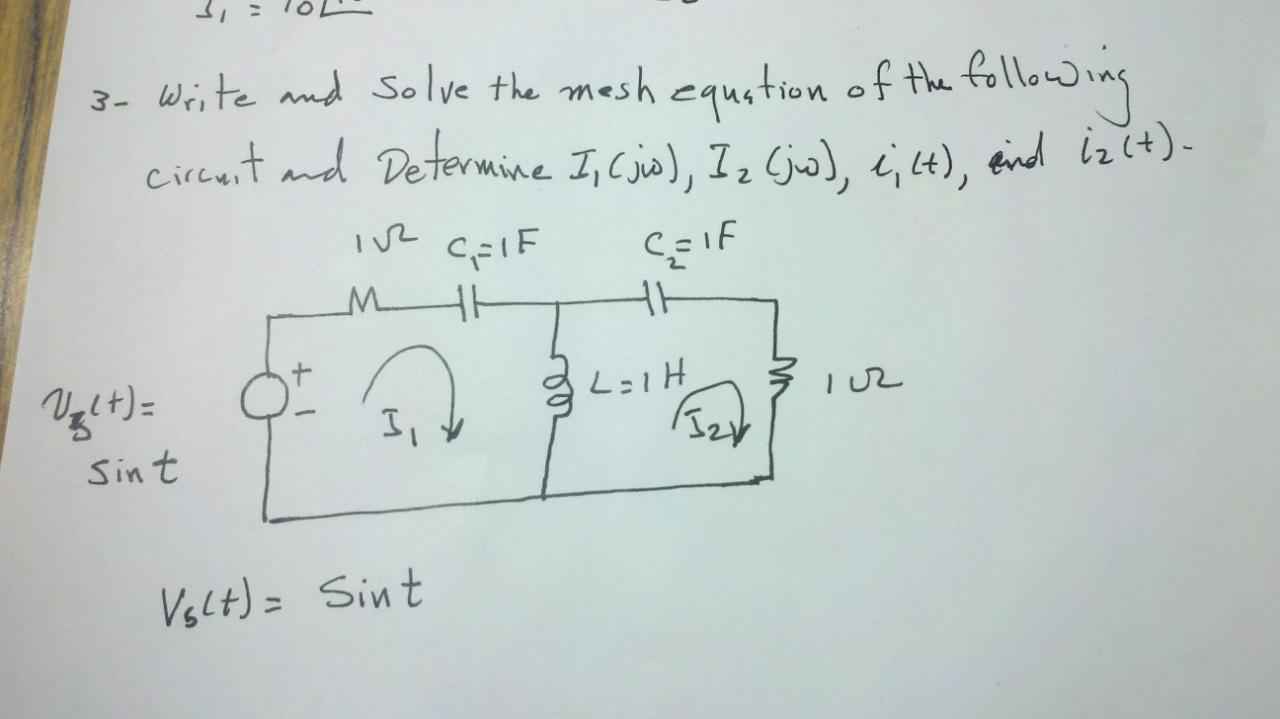 I₁ = 10
3- Write and Solve the mesh equation of the following
circuit and Determine I₁(jω), I₂(jω), i₁(t), and i₂(t).
1Ω C₁=1F C₂=1F
+
-
I₁
L=1H
I₂
1Ω
Vs(t)=
sin t
Vs(t)= Sin t